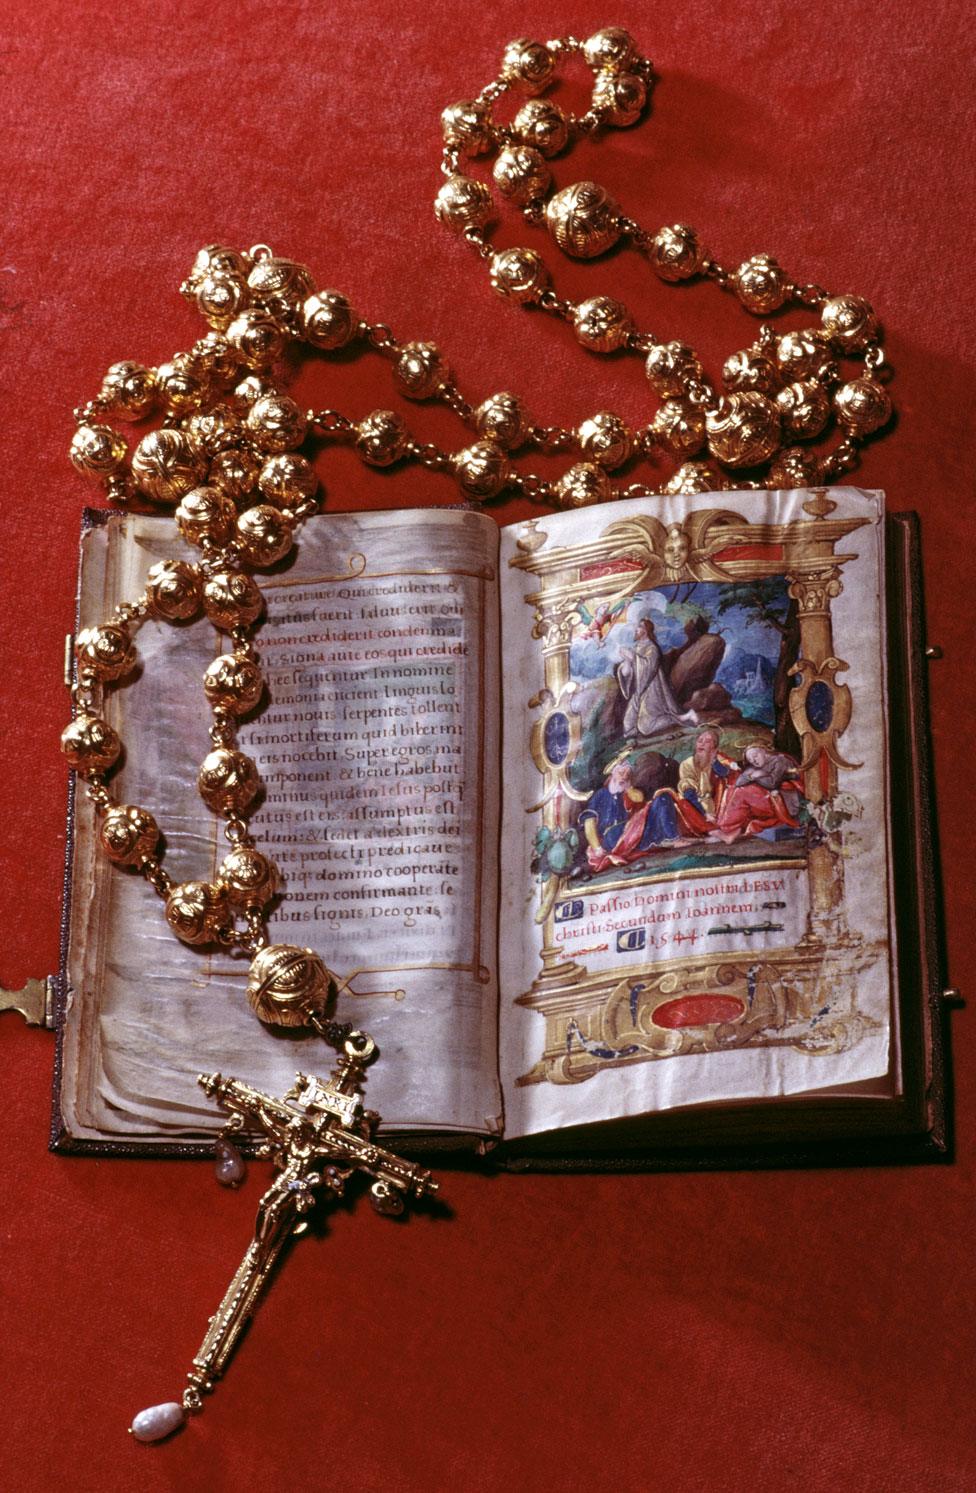 creature Qui crediderit &
fuerit saluus erit Qui
o non crediderit condemna
Signa aute eos qui credide
hec sequentur In nomine
demonia eiicient linguis lo
quentur nouis serpentes tollent
si mortiferum quid biberint
eis nocebit Super egros ma
imponent & bene habebut
minus quidem Iesus postq
cutus est eis: assumptus est
celum: & sedet a dextris dei
profecti predicaue
biq domino cooperate
onem confirmante se
tibus signis. Deo gras
Passio Domini nostri IESV
christi Secundum Ioannem.
1544.